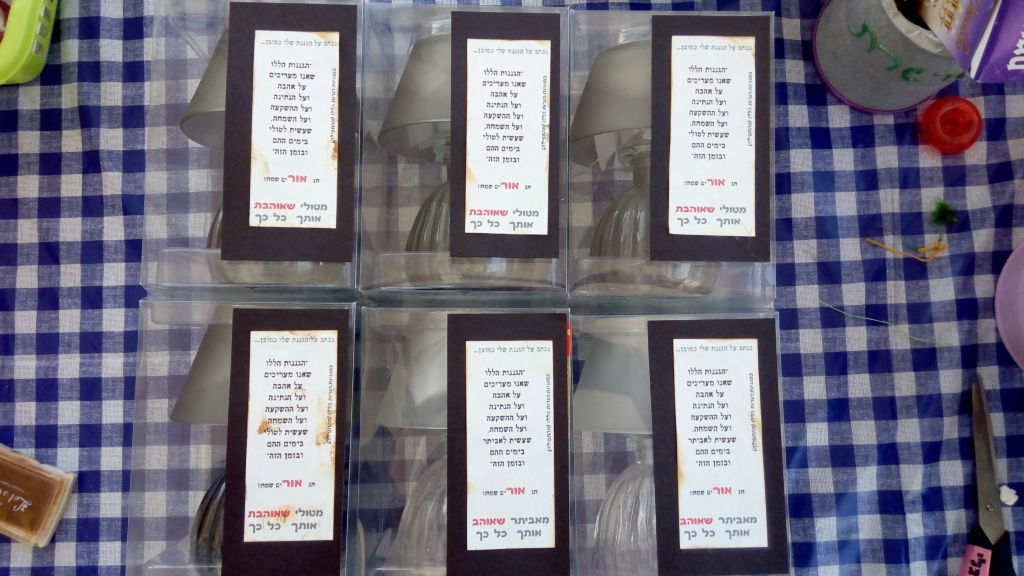 נכתב על הגננת שלי כמובן...
"הגננות הללו
שאנו מעריכים
על אהבה
ועל הנתינה
ועל ההשקעה
ועל השמחה,
שעשית לטולי
בימים ההם
ובזמן הזה"
חג אורים שמח!
מטולי שאוהבת
אותך כל כך
נכתב על הגננת שלי כמובן...
"הגננות הללו
שאנו מעריכים
על אהבה
ועל הנתינה
ועל ההשקעה
ועל השמחה,
שעשית לטולי
בימים ההם
ובזמן הזה"
חג אורים שמח!
מטולי שאוהבת
אותך כל כך
נכתב על הגננת שלי כמובן...
"הגננות הללו
שאנו מעריכים
על אהבה
ועל הנתינה
ועל ההשקעה
ועל השמחה,
שעשית לטולי
בימים ההם
ובזמן הזה"
חג אורים שמח!
מטולי שאוהבת
אותך כל כך
נכתב על הגננת שלי כמובן...
"הגננות הללו
שאנו מעריכים
על אהבה
ועל הנתינה
ועל ההשקעה
ועל השמחה,
שעשית לטולי
בימים ההם
ובזמן הזה"
חג אורים שמח!
מטולי שאוהבת
אותך כל כך
נכתב על הגננת שלי כמובן...
"הגננות הללו
שאנו מעריכים
על אהבה
ועל הנתינה
ועל ההשקעה
ועל השמחה,
שעשית לאביתר
בימים ההם
ובזמן הזה"
חג אורים שמח!
מאביתר שאוהב
אותך כל כך
נכתב על הגננת שלי כמובן...
"הגננות הללו
שאנו מעריכים
על אהבה
ועל הנתינה
ועל ההשקעה
ועל השמחה,
שעשית לאביתר
בימים ההם
ובזמן הזה"
חג אורים שמח!
מאביתר שאוהב
אותך כל כך